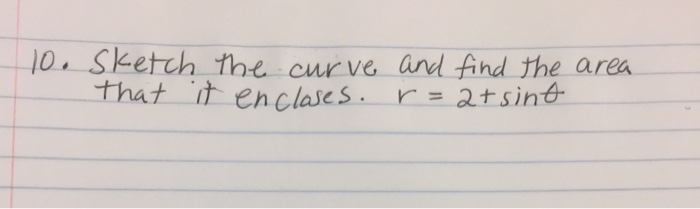 10. Sketch the curve and find the area
that it enclases. r = 2+sinθ